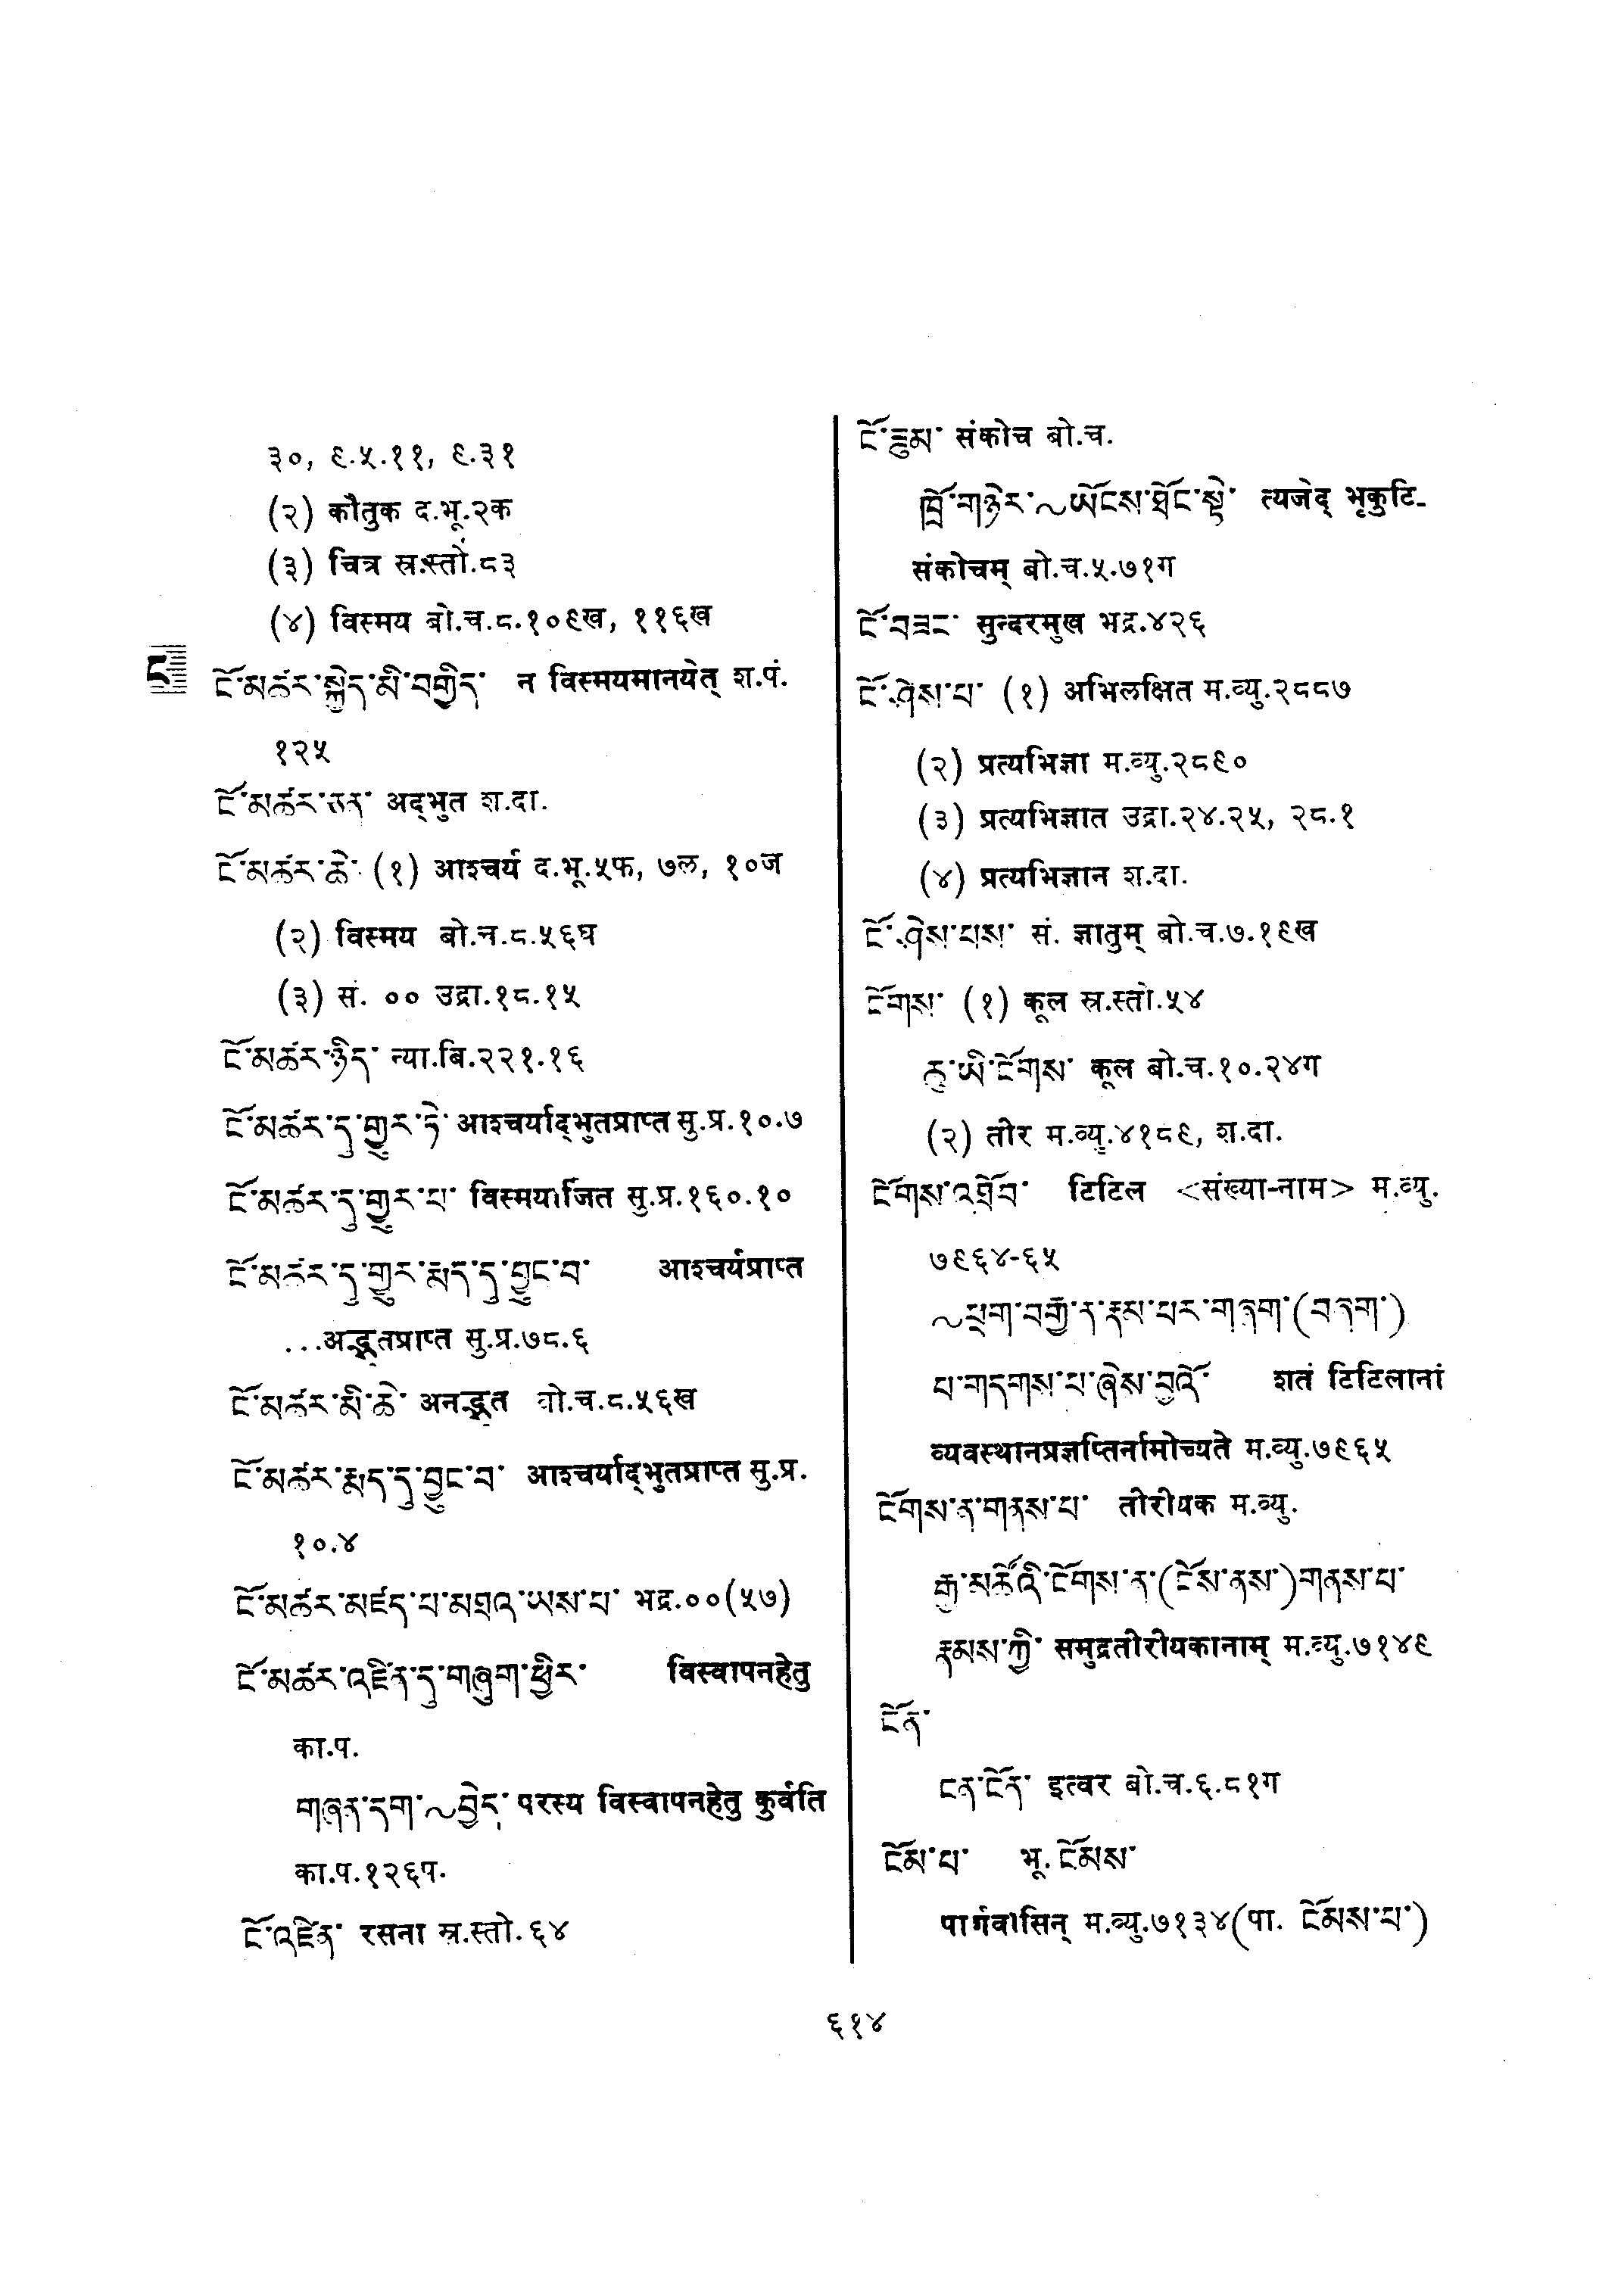 ३०, ९.५.११, ९.३१
(२) कौतुक द.भू.२क
(३) चित्र स्र.स्तो.८३
(४) विस्मय बो.च.८.१०९ख, ११६ख
ང
ངོ་མཚར་སྐྱེད་མི་བགྱིད་ न विस्मयमानयेत् श.पं.
१२५
ངོ་མཚར་ཅན་ अद्भुत श.दा.
ངོ་མཚར་ཆེ་ (१) आश्चर्य द.भू.५फ, ७ल, १०ज
(२) विस्मय बो.च.८.५६घ
(३) सं. ०० उद्रा.१८.१५
ངོ་མཚར་ཉིད་ न्या.बि.२२१.१६
ངོ་མཚར་དུ་གྱུར་ཏེ་ आश्चर्याद्भुतप्राप्त सु.प्र.१०.७
ངོ་མཚར་དུ་གྱུར་པ་ विस्मयार्जित सु.प्र.१६०.१०
ངོ་མཚར་དུ་གྱུར་རྨད་དུ་བྱུང་བ་ आश्चर्यप्राप्त
...अद्भूतप्राप्त सु.प्र.७८.६
ངོ་མཚར་མི་ཆེ་ अनद्भूत बो.च.८.५६ख
ངོ་མཚར་རྨད་དུ་བྱུང་བ་ आश्चर्याद्भुतप्राप्त सु.प्र.
१०.४
ངོ་མཚར་མཛད་པ་མཐའ་ཡས་པ་ भद्र.००(५७)
ངོ་མཚར་འཛིན་དུ་གཞུག་ཕྱིར་ विस्वापनहेतु
का.प.
གཞན་དག་~བྱེད་ परस्य विस्वापनहेतु कुर्वति
का.प.१२६प.
ངོ་འཛིན་ रसना स्र.स्तो.६४
ངོ་ཟུམ་ संकोच बो.च.
ཁྲོ་གཉེར་~ཡོངས་ཐོང་སྟེ་ त्यजेद् भृकुटि-
संकोचम् बो.च.५.७१ग
ངོ་བཟང་ सुन्दरमुख भद्र.४२६
ངོ་ཤེས་པ་ (१) अभिलक्षित म.व्यु.२८८७
(२) प्रत्यभिज्ञा म.व्यु.२८९०
(३) प्रत्यभिज्ञात उद्रा.२४.२५, २८.१
(४) प्रत्यभिज्ञान श.दा.
ངོ་ཤེས་པས་ सं. ज्ञातुम् बो.च.७.१९ख
ངོགས་ (१) कूल स्र.स्तो.५४
ཆུ་ཡི་ངོགས་ कूल बो.च.१०.२४ग
(२) तीर म.व्यु.४१८९, श.दा.
ངོགས་འགྲོབ་ टिटिल <संख्या-नाम> म.व्यु.
७९६४-६५
~ཕྲག་བརྒྱ་ན་རྣམ་པར་གཞག་(བཞག་)
པ་གདགས་པ་ཞེས་བྱའོ་ शतं टिटिलानां
व्यवस्थानप्रज्ञप्तिर्नामोच्यते म.व्यु.७९६५
ངོགས་ན་གནས་པ་ तीरीयक म.व्यु.
རྒྱ་མཚོའི་ངོགས་ན་(ངོས་ནས་)གནས་པ་
རྣམས་ཀྱི་ समुद्रतीरीयकानाम् म.व्यु.७१४९
ངོན་
ངན་ངོན་ इत्वर बो.च.६.८१ग
ངོམ་པ་ भू. ངོམས་
पार्गवासिन् म.व्यु.७१३४(पा. ངོམས་པ་)
६१४